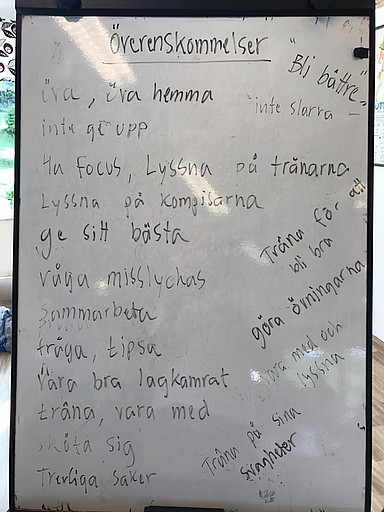 Överenskommelser
"Bli bättre"
öva, öva hemma
inte slarva
inte ge upp
Ha focus, Lyssna på tränarna
Lyssna på kompisarna
ge sitt bästa
Träna för att
bli bra
våga misslyckas
göra övningarna
sammarbeta
fråga, tipsa
vara med och
lyssna
Vara bra lagkamrat
träna, vara med
Träna på sina
svagheter
sköta sig
Trevliga saker